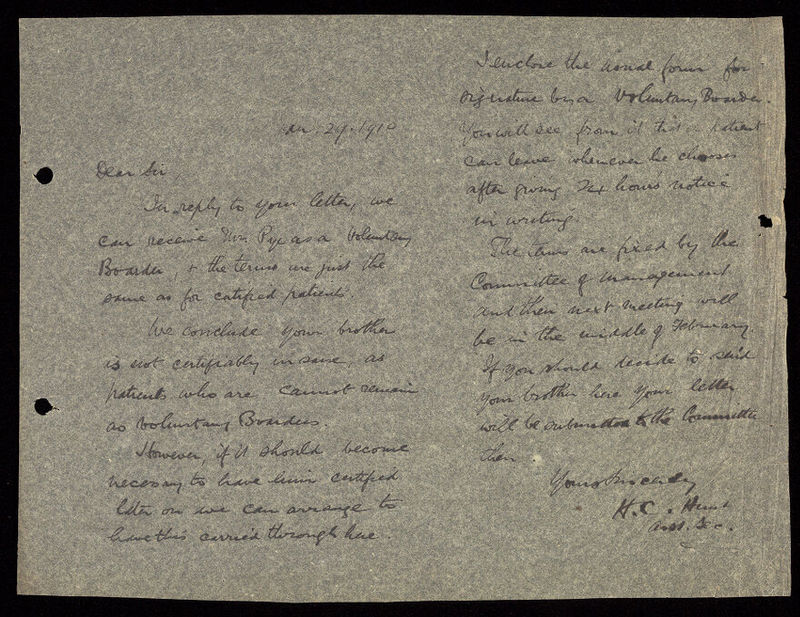 Jan. 29. 1910
Dear Sir,
In reply to your letter, we
can receive Mr. Pye as a Voluntary
Boarder, & the terms are just the
same as for certified patients.
We conclude your brother
is not certifiably insane, as
patients who are cannot remain
as Voluntary Boarders.
However, if it should become
necessary to have him certified
later on we can arrange to
have this carried through here.
I enclose the usual form for
signature by a Voluntary Boarder.
You will see from it that a patient
can leave whenever he chooses
after giving 24 hours notice
in writing.
The terms are fixed by the
Committee of management
and their next meeting will
be in the middle of February.
If you should decide to send
your brother here your letter
will be submitted to the Committee
then
Yours Sincerely
H. C.
Asst. Sec.